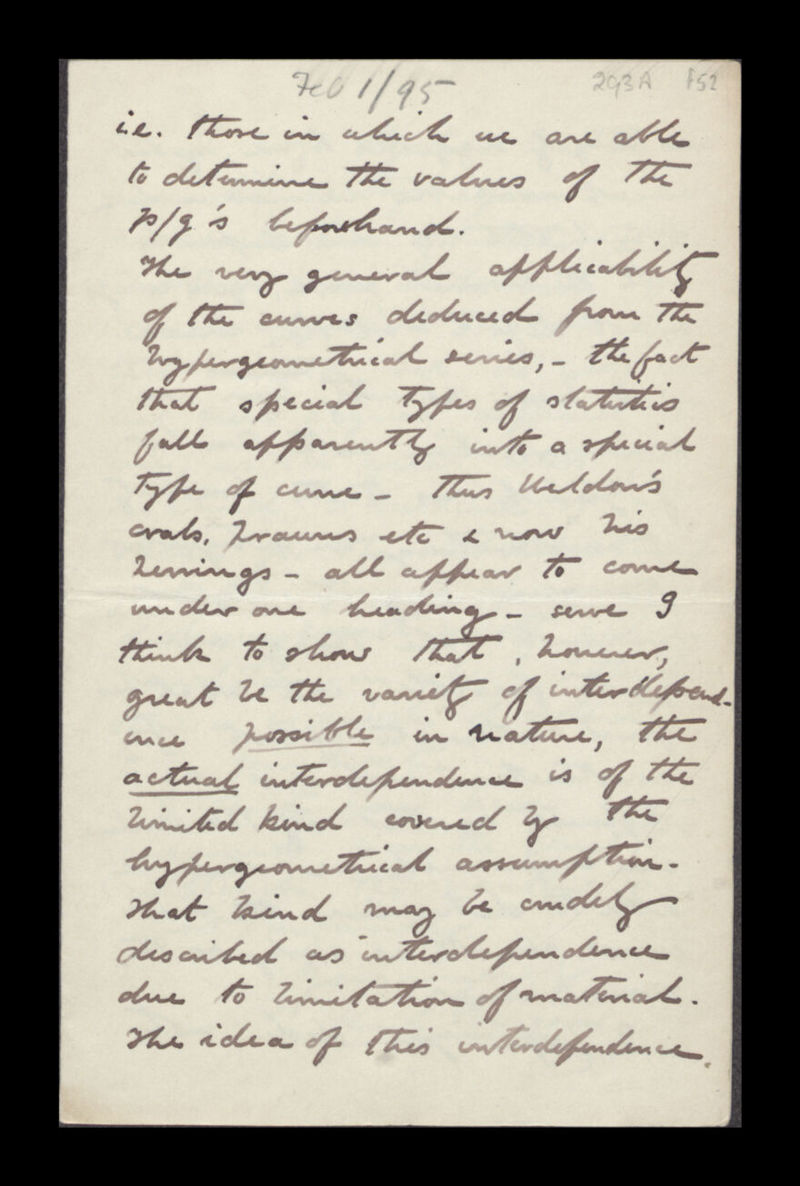 Feb 1/95
293A f52
i.e. those in which we are able
to determine the values of the
p/q's beforehand.
The very general applicability
of the curves deduced from the
hypergeometrical series, - the fact
that special types of statistics
fall apparently into a special
type of curve - thus Weldon's
crabs, prawns etc & now his
herrings - all appear to come
under one heading - serve I
think to show that, however,
great be the variety of interdepend-
ence possible in nature, the
actual interdependence is of the
limited kind covered by the
hypergeometrical assumption.
That kind may be crudely
described as interdependence
due to limitation of material.
The idea of this interdependence